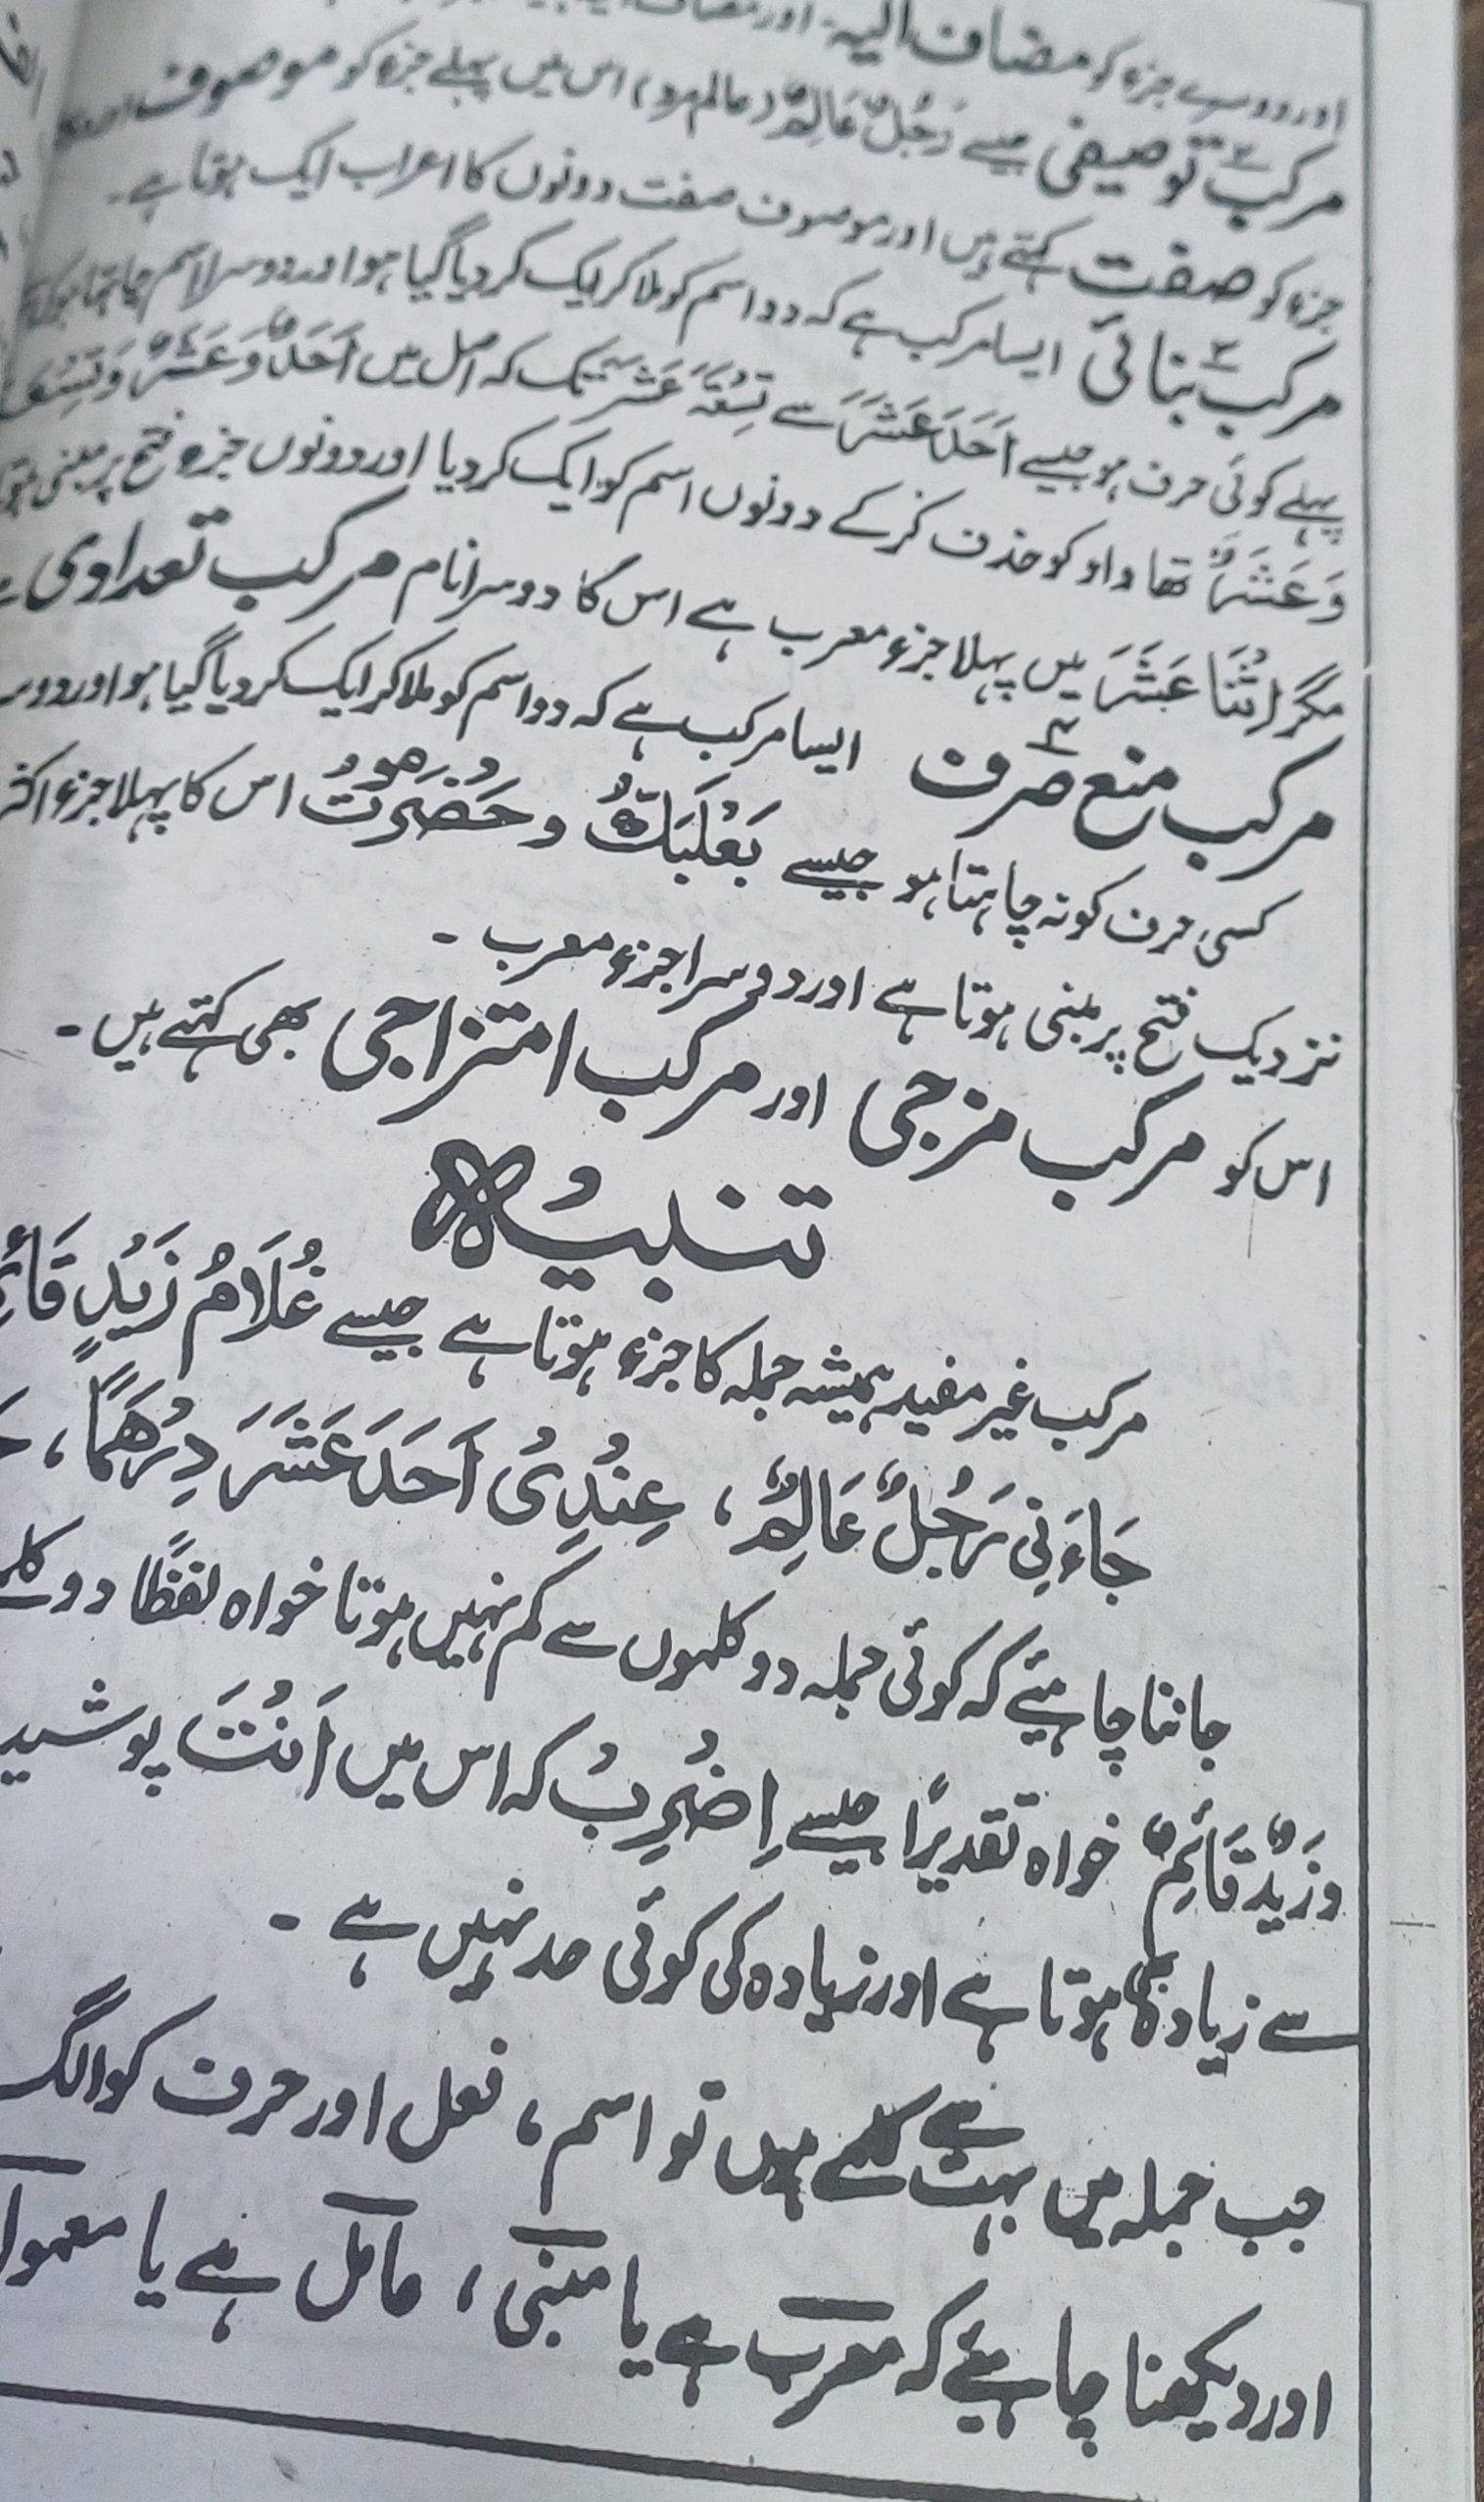 اور دوسرے جزء کو مضاف الیہ۔ اور مضاف
مرکب توصیفی جیسے رَجُلٌ عَالِمٌ (عالم مرد) اس میں پہلے جزء کو موصوف
جزء کو صفت کہتے ہیں اور موصوف صفت دونوں کا اعراب ایک ہوتا ہے۔
مرکب بنائی ۳ ایسا مرکب ہے کہ دو اسم کو ملا کر ایک کر دیا گیا ہو اور دوسرا اسم چاہتا ہو
پہلے کوئی حرف ہو جیسے اَحَدَ عَشَرَ سے تِسْعَةَ عَشَرَ تک کہ اصل میں اَحَدٌ وَعَشَرٌ
وَعَشَرٌ تھا واو کو حذف کرکے دونوں اسم کو ایک کر دیا اور دونوں جزء فتح پر مبنی
مگر اِثْنَا عَشَرَ میں پہلا جزء معرب ہے اس کا دوسرا نام مرکب تعدادی
مرکب منع صرف ۴ ایسا مرکب ہے کہ دو اسم کو ملا کر ایک کر دیا گیا ہو اور
کسی حرف کو نہ چاہتا ہو جیسے بَعْلَبَكُّ و حَضْرَمَوْتُ اس کا پہلا جزء اکثر
نزدیک فتح پر مبنی ہوتا ہے اور دوسرا جزء معرب۔
اس کو مرکب مزجی اور مرکب امتزاجی بھی کہتے ہیں۔
تنبیہ
مرکب غیر مفید ہمیشہ جملہ کا جزء ہوتا ہے جیسے غُلَامُ زَيْدٍ
جَاءَنِی رَجُلٌ عَالِمٌ، عِنْدِیْ اَحَدَ عَشَرَ دِرْهَمًا،
جاننا چاہئیے کہ کوئی جملہ دو کلموں سے کم نہیں ہوتا خواہ لفظًا دو
و زَيْدٌ قَائِمٌ خواہ تقدیرًا جیسے اِضْرِبْ کہ اس میں اَنْتَ
سے زیادہ بھی ہوتا ہے اور زیادہ کی کوئی حد نہیں ہے۔
جب جملہ میں بہت سے کلمے ہوں تو اسم، فعل اور حرف کو الگ
اور دیکھنا چاہئیے کہ معرب ہے یا مبنی، عامل ہے یا